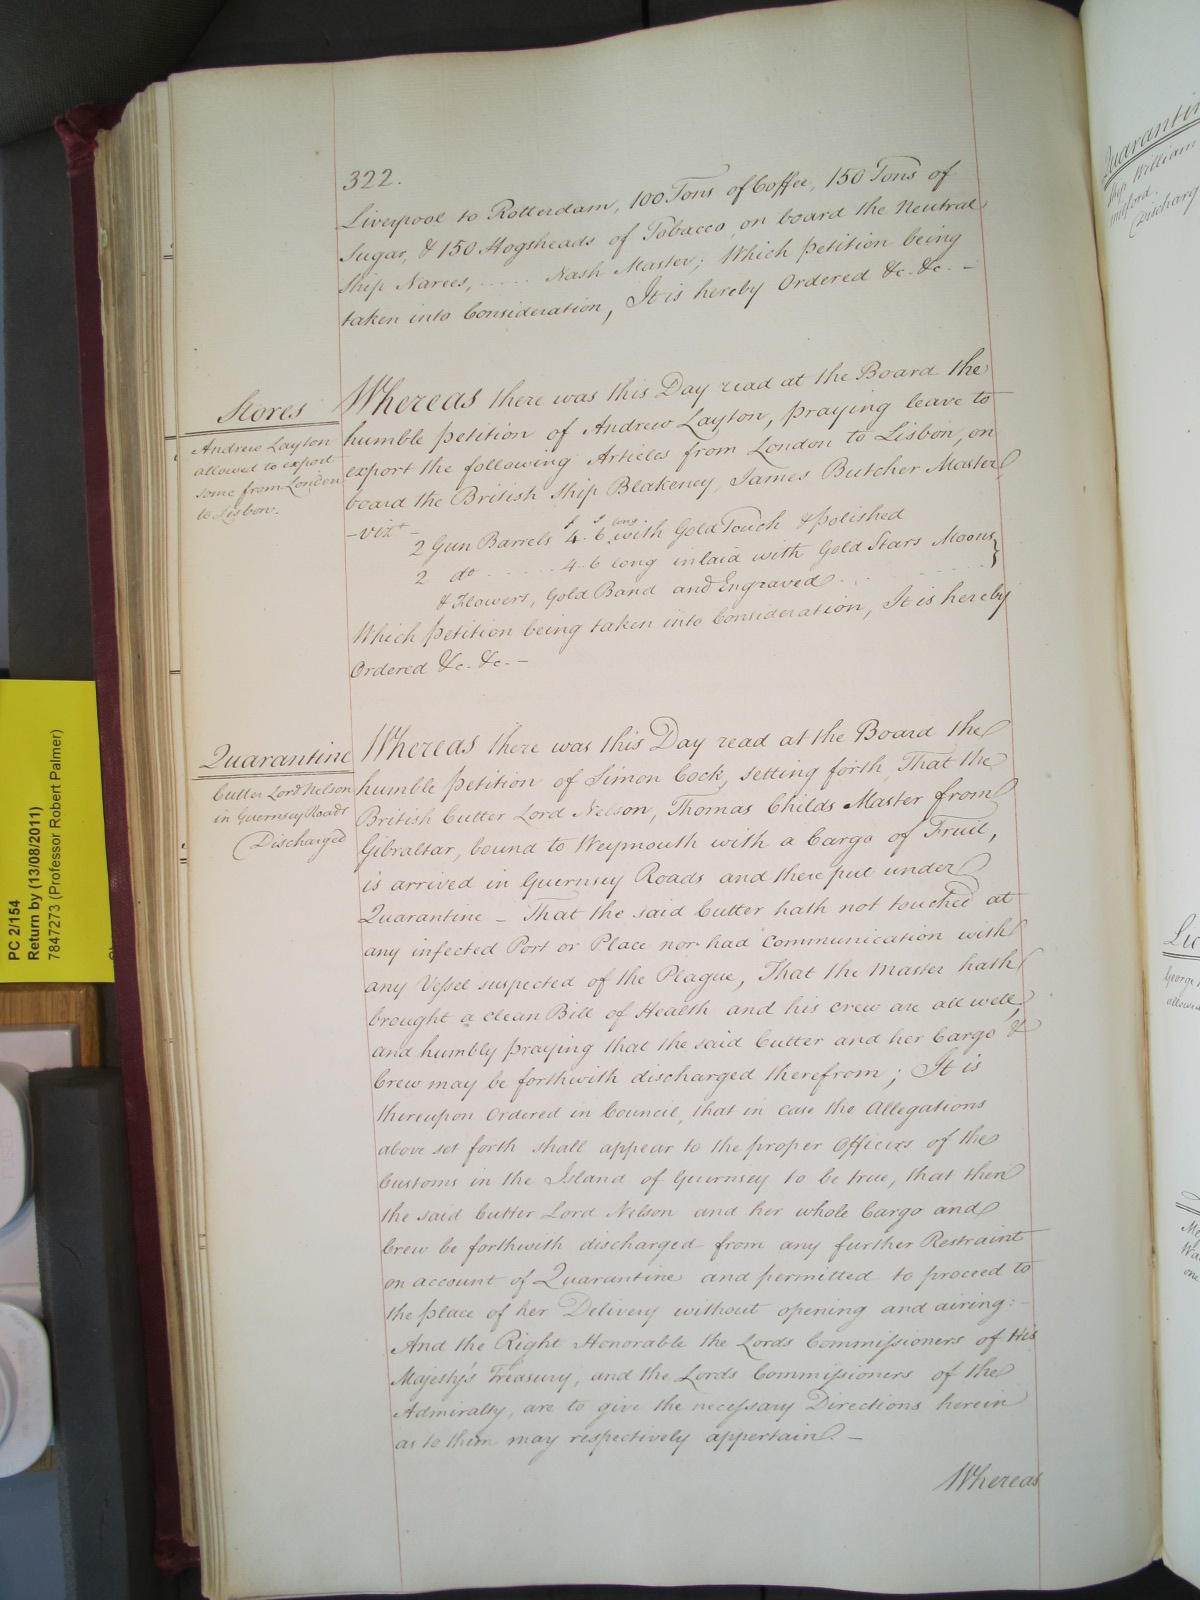 322.
Liverpool to Rotterdam, 100 Tons of Coffee, 150 Tons of
Sugar, & 150 Hogsheads of Tobacco, on board the Neutral
Ship Narees, ..... Nash Master; Which Petition being
taken into Consideration, It is hereby Ordered &c. &c. –
Stores
Andrew Layton
allowed to export
some from London
to Lisbon.
Whereas there was this Day read at the Board the
humble Petition of Andrew Layton, praying leave to
export the following Articles from London to Lisbon, on
board the British Ship Blakeney, James Butcher Master,
–vizt–
2 Gun Barrels 4.. 6 long with Gold Touch & polished
2 do ...... 4..6 long inlaid with Gold Stars Moons
& Flowers, Gold Band and Engraved ...
Which Petition being taken into Consideration, It is hereby
Ordered &c. &c. –
Quarantine
Cutter Lord Nelson
in Guernsey Roads
Discharged
Whereas there was this Day read at the Board the
humble Petition of Simon Cock, setting forth, That the
British Cutter Lord Nelson, Thomas Childs Master from
Gibraltar, bound to Weymouth with a Cargo of Fruit,
is arrived in Guernsey Roads and there put under
Quarantine – That the said Cutter hath not touched at
any infected Port or Place nor had communication with
any Vessel suspected of the Plague, That the Master hath
brought a clean Bill of Health and his crew are all well,
and humbly praying that the said Cutter and her Cargo &
Crew may be forthwith discharged therefrom; It is
thereupon Ordered in Council, that in case the Allegations
above set forth shall appear to the proper Officers of the
Customs in the Island of Guernsey to be true, that then
the said Cutter Lord Nelson and her whole Cargo and
Crew be forthwith discharged from any further Restraint
on account of Quarantine and permitted to proceed to
the place of her Delivery without opening and airing: –
And the Right Honorable the Lords Commissioners of His
Majesty's Treasury, and the Lords Commissioners of the
Admiralty, are to give the necessary Directions herein
as to them may respectively appertain. –
Whereas
PC 2/154
Return by (13/08/2011)
7847273 (Professor Robert Palmer)
Quarantin
Ship William
Milford.
Discharg